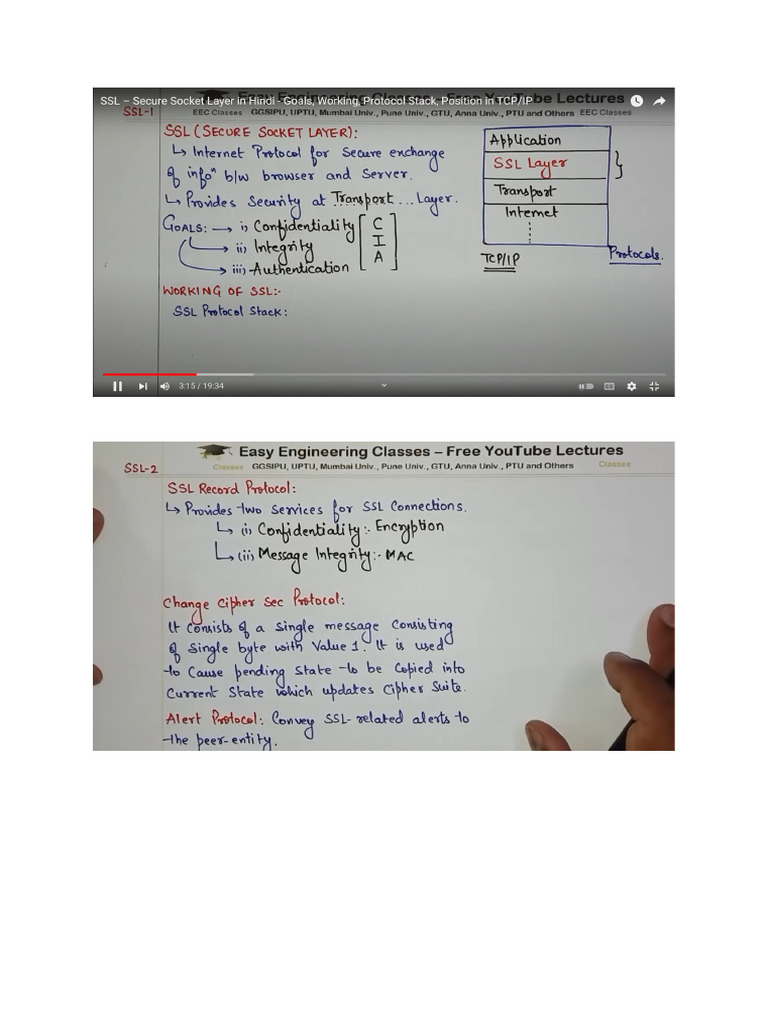 SSL – Secure Socket Layer in Hindi - Goals, Working, Protocol Stack, Position in TCP/IP
Easy Engineering Classes – Free YouTube Lectures
SSL-1
EEC Classes GGSIPU, UPTU, Mumbai Univ., Pune Univ., GTU, Anna Univ., PTU and Others EEC Classes
SSL (SECURE SOCKET LAYER):
↳ Internet Protocol for Secure exchange
of infoⁿ b/w browser and Server.
↳ Provides Security at Transport Layer.
GOALS: → i) Confidentiality
ii) Integrity
iii) Authentication
C
I
A
WORKING OF SSL:-
SSL Protocol Stack:
Application
SSL Layer
Transport
Internet
TCP/IP
Protocols.
3:15 / 19:34
Easy Engineering Classes – Free YouTube Lectures
SSL-2
Classes GGSIPU, UPTU, Mumbai Univ., Pune Univ., GTU, Anna Univ., PTU and Others Classes
SSL Record Protocol:
↳ Provides two Services for SSL Connections.
↳ (i) Confidentiality:- Encryption
↳ (ii) Message Integrity:- MAC
Change Cipher Sec Protocol:
It consists of a Single message Consisting
of Single byte with Value 1. It is used
to Cause pending State to be Copied into
Current State which updates Cipher Suite.
Alert Protocol: Convey SSL-related alerts to
the peer-entity.